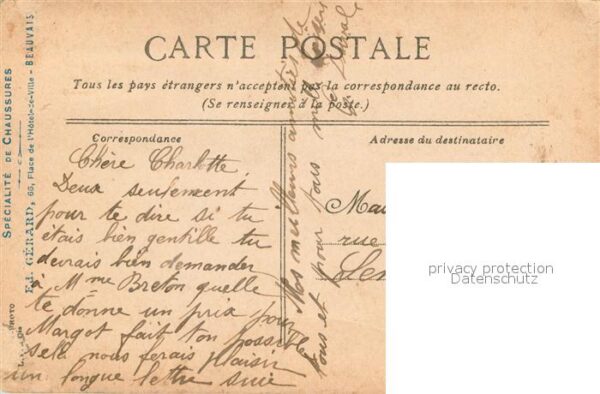 CARTE POSTALE
Tous les pays étrangers n'acceptent pas la correspondance au recto.
(Se renseigner à la poste.)
Correspondance
Adresse du destinataire
Chère Charlotte
Deux seulement
pour te dire si tu
étais bien gentille tu
devrais bien demander
à Mme Breton quelle
te donne un prix pour
Margot fait ton possible
sela nous ferais plaisir
un longue lettre suie
Mes meilleurs amitiés de
tous et pour fais mille
rue
SPÉCIALITÉ DE CHAUSSURES
Ed. GÉRARD, 66, Place de l'Hôtel-de-Ville - BEAUVAIS
PHOTO
privacy protection
Datenschutz